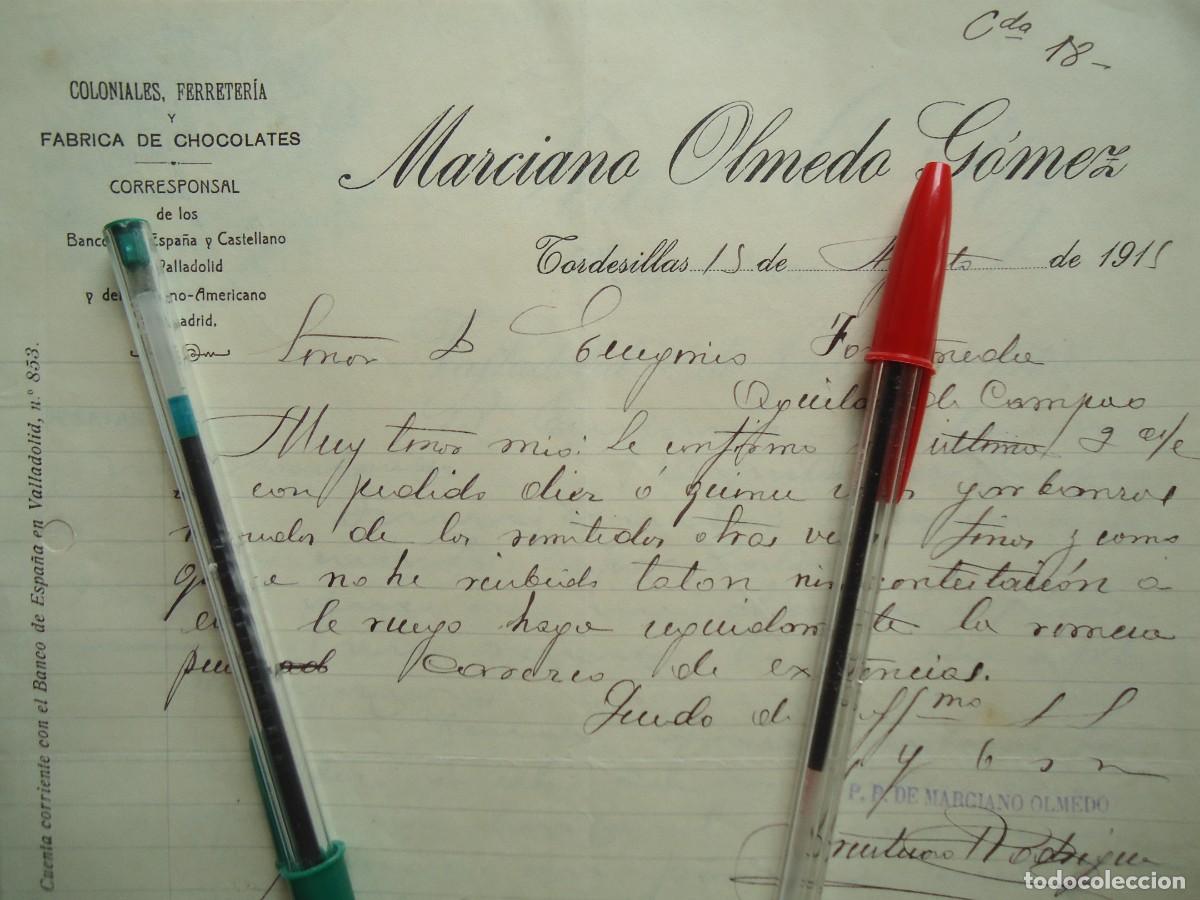 Cda 18-
COLONIALES, FERRETERÍA
Y
FABRICA DE CHOCOLATES
CORRESPONSAL
de los
Banco España y Castellano
Valladolid
y de no-Americano
adrid,
Marciano Olmedo Gómez
Tordesillas 15 de A to de 1915
Señor D Eugenio Fo
Aguila de Campoo
Muy Señor mio: Le confirmo último 2
con pedido diez ó quince garbanzos
de los remitidos otras ve finos y como
qu e no he recibido talon ni contestación a
e le ruego haga seguidam te la remesa
pues carezco de ex encias.
Quedo de ff mo S S
q b s m
P. P. DE MARCIANO OLMEDO
Rodriguez
Cuenta corriente con el Banco de España en Valladolid, n.º 853.
todocoleccion